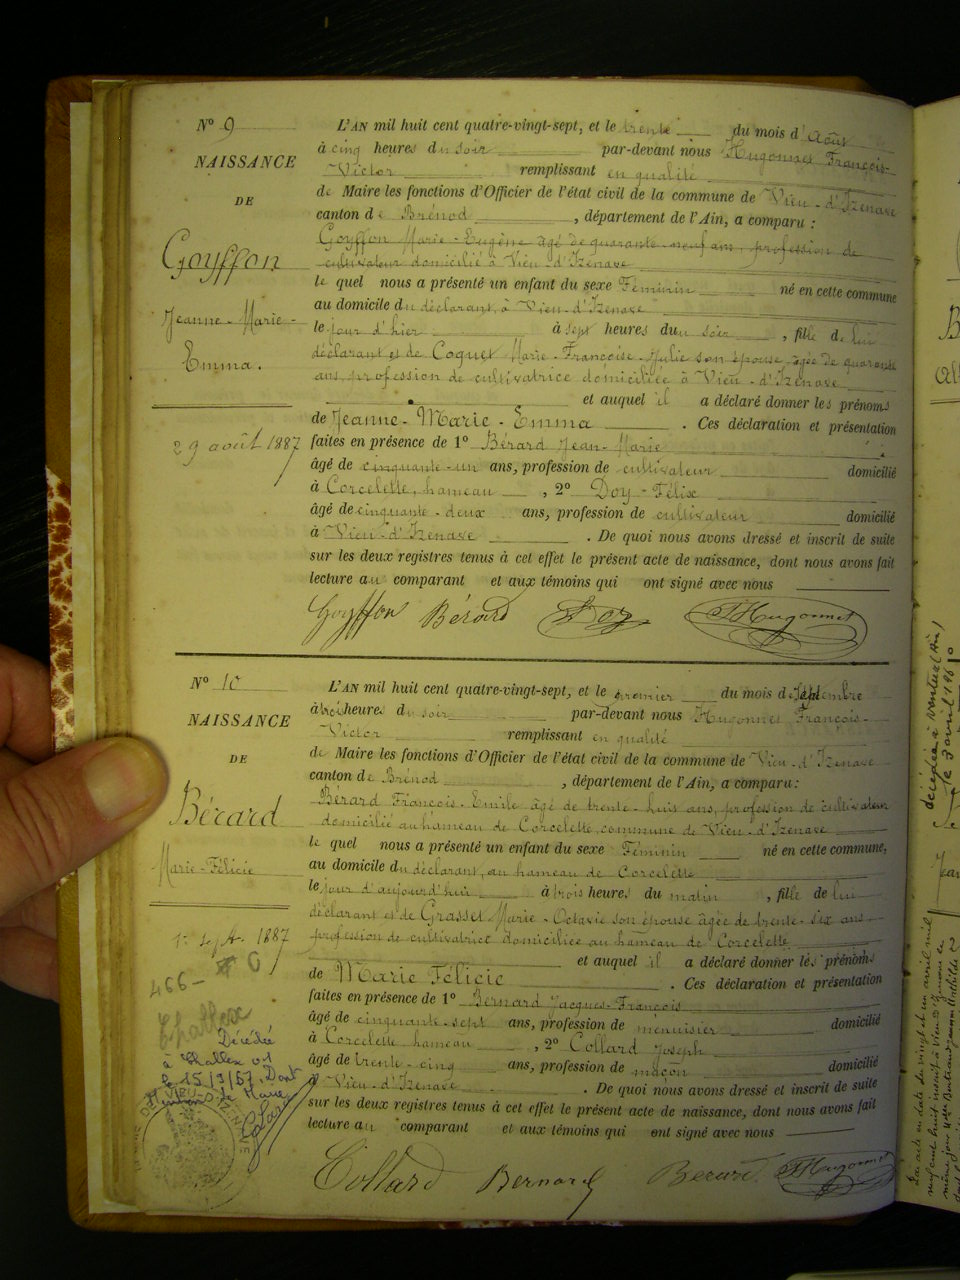 N° 9
NAISSANCE
DE
Goyffon
Jeanne-Marie-
Emma.
29 août 1887
L'AN mil huit cent quatre-vingt-sept, et le trente du mois d'Août
à cinq heures du soir par-devant nous Hugonnet François-
Victor remplissant en qualité
de Maire les fonctions d'Officier de l'état civil de la commune de Vieu-d'Izenave
canton de Brénod, département de l'Ain, a comparu :
Goyffon Marie-Eugène âgé de quarante-neuf ans, profession de
cultivateur domicilié à Vieu-d'Izenave
le quel nous a présenté un enfant du sexe Féminin né en cette commune
au domicile du déclarant, à Vieu-d'Izenave
le jour d'hier à sept heures du soir, fille de lui
déclarant et de Coquet Marie-Françoise-Julie son épouse, agée de quarante
ans, profession de cultivatrice domiciliée à Vieu-d'Izenave
et auquel il a déclaré donner les prénoms
de Jeanne-Marie-Emma. Ces déclaration et présentation
faites en présence de 1° Bérard Jean-Marie
âgé de cinquante-un ans, profession de cultivateur domicilié
à Corcelette, hameau, 2° Doy-Félix
âgé de cinquante-deux ans, profession de cultivateur domicilié
à Vieu-d'Izenave. De quoi nous avons dressé et inscrit de suite
sur les deux registres tenus à cet effet le présent acte de naissance, dont nous avons fait
lecture au comparant et aux témoins qui ont signé avec nous
Goyffon Bérard Doy FHugonnet
N° 10
NAISSANCE
DE
Bérard
Marie-Félicie
1er sept. 1887
466-
Challex
Décédée
à Challex 01
le 15/3/67, Dont
Mention le Maire
L'AN mil huit cent quatre-vingt-sept, et le premier du mois de Septembre
à trois heures du soir par-devant nous Hugonnet François-
Victor remplissant en qualité
de Maire les fonctions d'Officier de l'état civil de la commune de Vieu-d'Izenave
canton de Brénod, département de l'Ain, a comparu :
Bérard François-Emile âgé de trente-huit ans, profession de cultivateur
domicilié au hameau de Corcelette, commune de Vieu-d'Izenave
le quel nous a présenté un enfant du sexe Féminin né en cette commune,
au domicile du déclarant, au hameau de Corcelette
le jour d'aujourd'hui à trois heures du matin, fille de lui
déclarant et de Grasset Marie-Octavie son épouse âgée de trente-six ans
profession de cultivatrice domiciliée au hameau de Corcelette
et auquel il a déclaré donner les prénoms
de Marie Félicie. Ces déclaration et présentation
faites en présence de 1° Bernard Jacques-François
âgé de cinquante-sept ans, profession de menuisier domicilié
à Corcelette hameau, 2° Collard Joseph
âgé de trente-cinq ans, profession de maçon domicilié
à Vieu-d'Izenave. De quoi nous avons dressé et inscrit de suite
sur les deux registres tenus à cet effet le présent acte de naissance, dont nous avons fait
lecture au comparant et aux témoins qui ont signé avec nous
Collard Bernard Berard FHugonnet